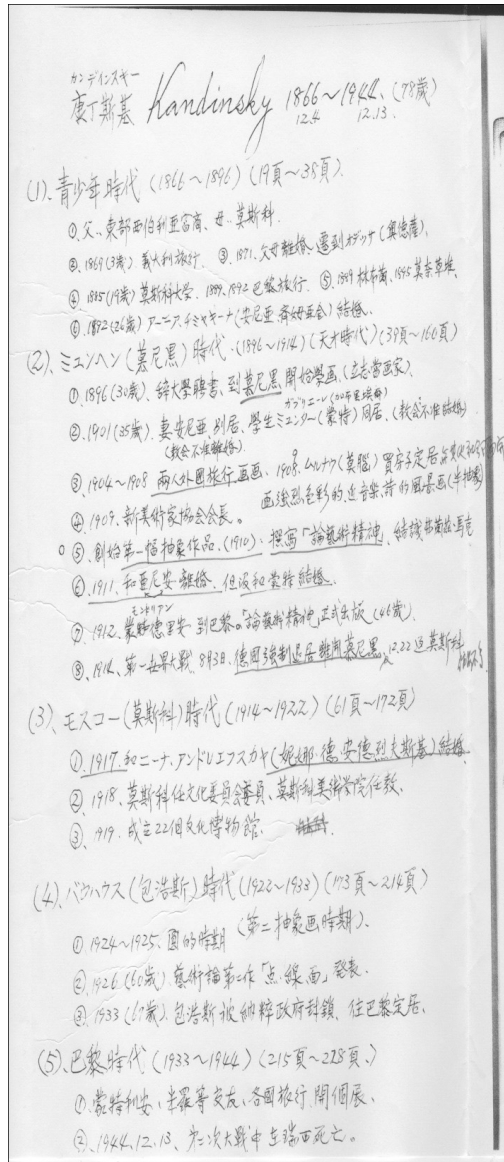 カンディンスキー
康丁斯基 Kandinsky 1866～1944、(78歲)
12.4 12.13.
(1)、青少年時代 (1866～1896) (19頁～38頁)
①、父、東部西伯利亞富商、母、莫斯科
②、1869 (3歲) 義大利旅行 ③、1871、父母離婚、遷到オデッサ (奧德薩)、
④、1885 (19歲) 莫斯科大學、1889、1892 巴黎旅行、⑤、1889 林布蘭、1895 莫奈草堆、
⑥、1892 (26歲) アーニア、チミャキーナ (安尼亞·齊姆亞金) 結婚、
(2)、ミュンヘン (慕尼黑) 時代、(1896～1914) (天才時代) (39頁～160頁)
①、1896 (30歲)、辞大學聘書、到慕尼黑開始學画、(立志當画家)、
ガブリエーレ
②、1901 (35歲)、妻安尼亞 別居、學生ミュンター (蒙特) 同居、(教会不准結婚)
(教会不准離婚)
③、1904～1908 兩人外國旅行画画、1908、ムルナウ (莫腦) 買房子定居
画強烈色彩的、近音樂、詩的風景画 (半抽象)
④、1909、新美術家協会会長。
⑤、創始第一幅抽象作品、(1910)、撰寫「論藝術精神」、結識 馬克
⑥、1911、和亞尼安離婚、但沒和蒙特結婚、
モンドリアン
⑦、1912、蒙德里安到巴黎。「論藝術精神」正式出版 (46歲)、
⑧、1914、第一世界大戰、8月3日、德國強制退居離開慕尼黑、12.22 返莫斯科
(3)、モスコー (莫斯科) 時代 (1914～1922) (161頁～172頁)
①、1917、和ニーナ、アンドレエフスカヤ (妮娜·德·安德烈夫斯基) 結婚
②、1918、莫斯科任文化委員会委員、莫斯科美術学院任教、
③、1919、成立22個文化博物館、
(4)、バウハウス (包浩斯) 時代 (1922～1933) (173頁～214頁)
①、1924～1925、圓的時期 (第二抽象画時期)、
②、1926 (60歲) 藝術論第二作「点、線、面」發表、
③、1933 (67歲)、包浩斯被納粹政府封鎖、往巴黎定居、
(5)、巴黎時代 (1933～1944) (215頁～228頁、)
①、蒙特利安、米羅等交友、各國旅行、開個展、
②、1944、12、13、第二次大戰中在瑞西死亡。